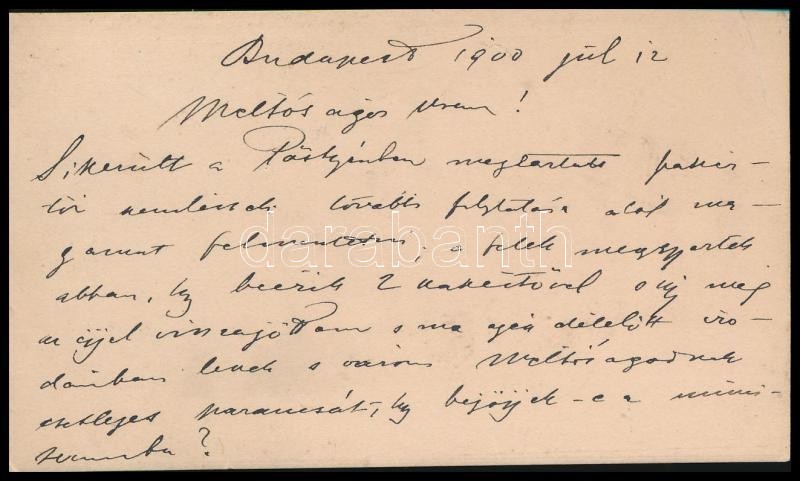 Budapest 1900 júl 12
Méltóságos Uram!
Sikerült a Pöstyénben megtartott szakér-
tői szemlének további folytatása alól ma-
gamat felmentetni, a felek megegyeztek
abban, hogy beérik 2 szakértővel s így még
az éjjel visszajöttem s ma egész délelőtt iro-
dámban leszek s várom Méltóságodnak
esetleges parancsát, hogy bejöjjek-e a minis-
teriumba?
darabanth